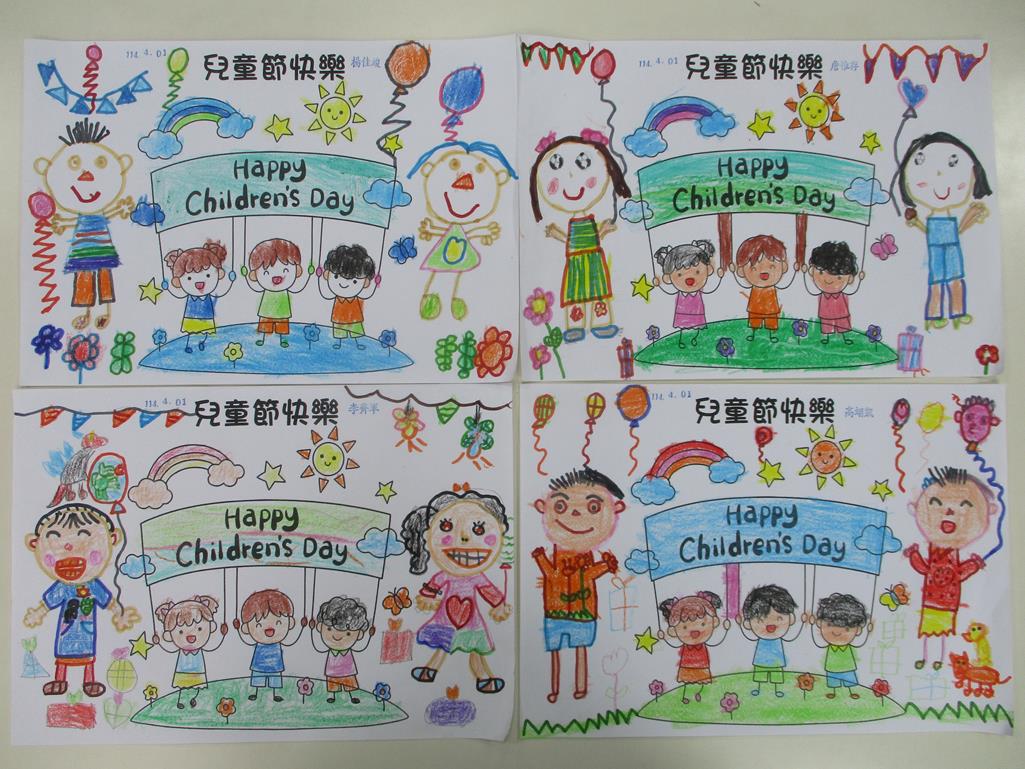 114. 4. 01 兒童節快樂
Happy
Children's Day
114. 4. 01 兒童節快樂
Happy
Children's Day
114. 4. 01 兒童節快樂
Happy
Children's Day
114. 4. 01 兒童節快樂
Happy
Children's Day